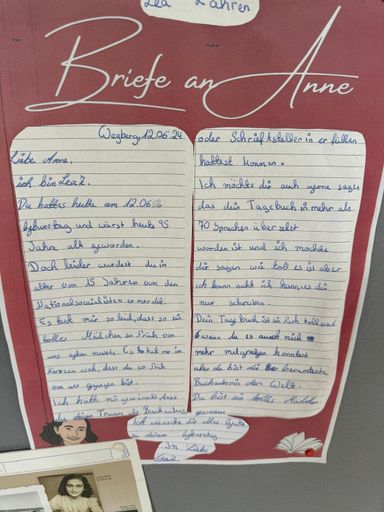 Lea Zahren
Briefe an Anne
Wegberg, 12.06.24
Liebe Anne,
ich bin Lea Z.
Du hattes heute am 12.06
Geburstag und wärst heute 95
Jahre alt geworden.
Doch leider wurdest du in
alter von 15 Jahren von den
Nationalsozialisten ermordet.
Es tut mir so leid, dass so ein
tolles Mädchen so früh von
uns gehen musste. Es tut mir im
Herzen weh, das du so früh
von uns gegangen bist.
Ich hätte mir gewünscht, dass
du deinen Traum als Buchautorin
oder Schriftsteller in erfüllen
hättest können.
Ich möchte dir auch gerne sagen
das dein Tagebuch in mehr als
70 Sprachen übersetzt
worden ist und ich möchte
dir sagen wie toll es ist aber
ich kann nicht ich kann es dir
nur schreiben.
Dein Tagebuch ist ein Buch toll und
wenn du es auch nich
mehr mitgreifen konntest
aber du bist die berümteste
Buchautorin der Welt.
Du bist ein tolles
Ich wünsche dir alles gute
zu deinem Geburtstag
In Liebe
Lea Z.